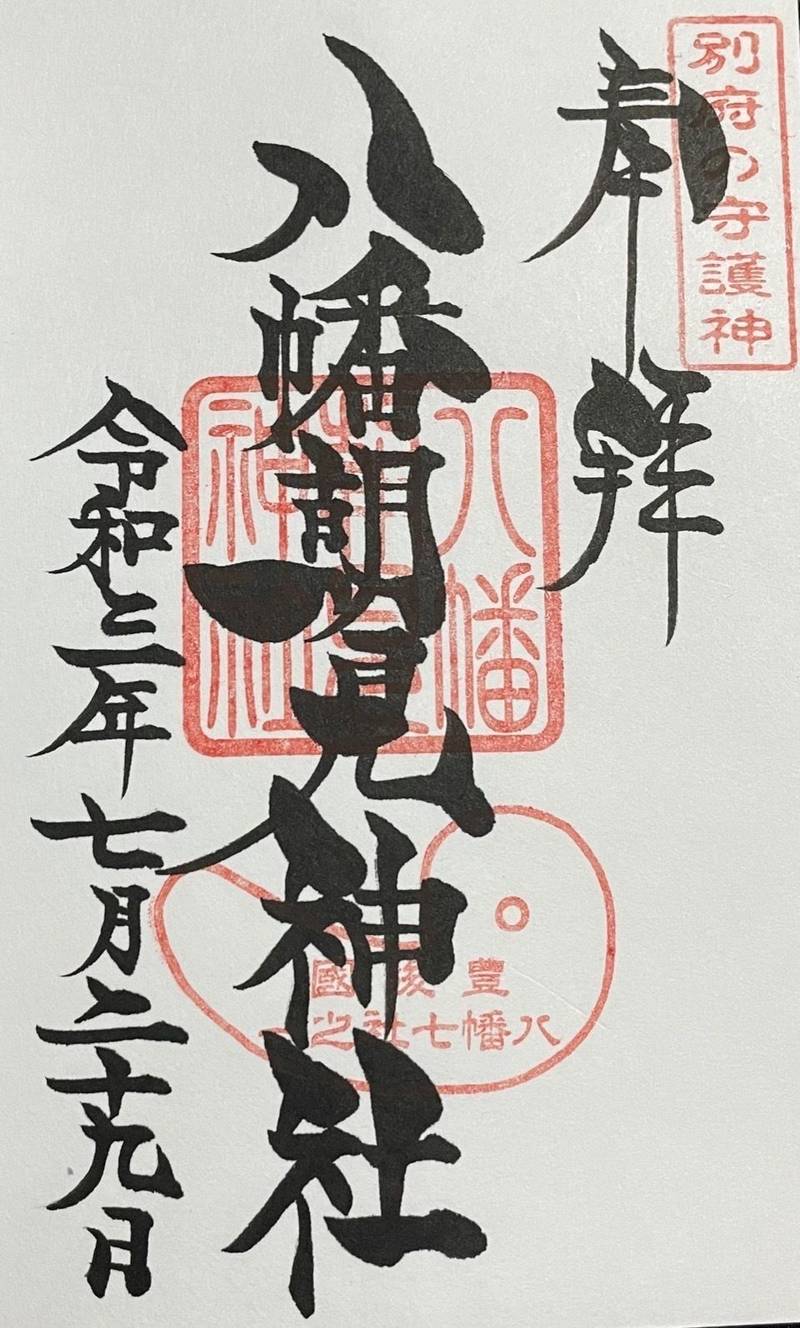 別府の守護神
奉拝
八幡朝見神社
八幡朝見神社
豐後國
八幡七社之一
令和三年七月二十九日